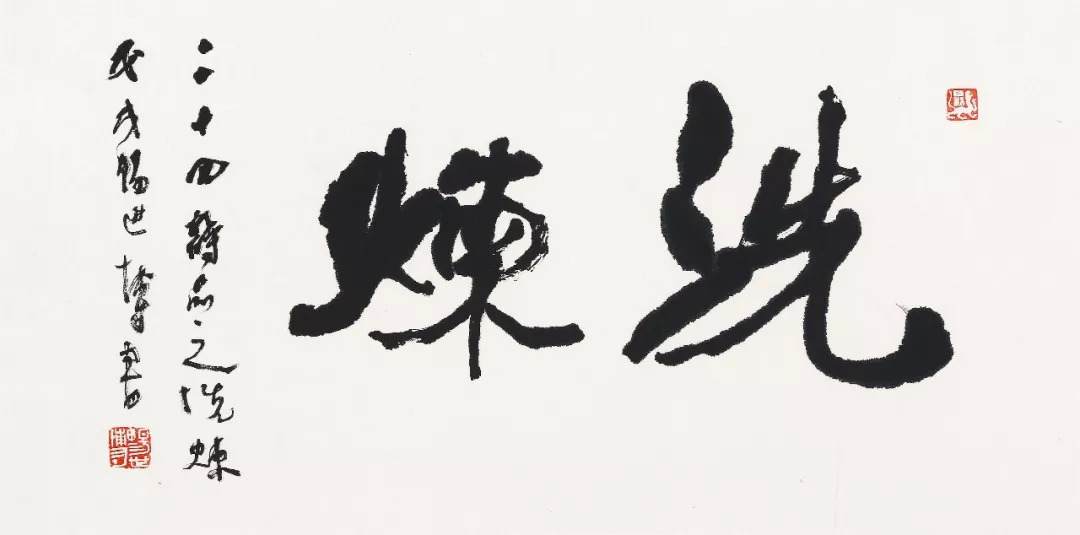 洗煉
二十四詩品之洗煉
戊戌 書